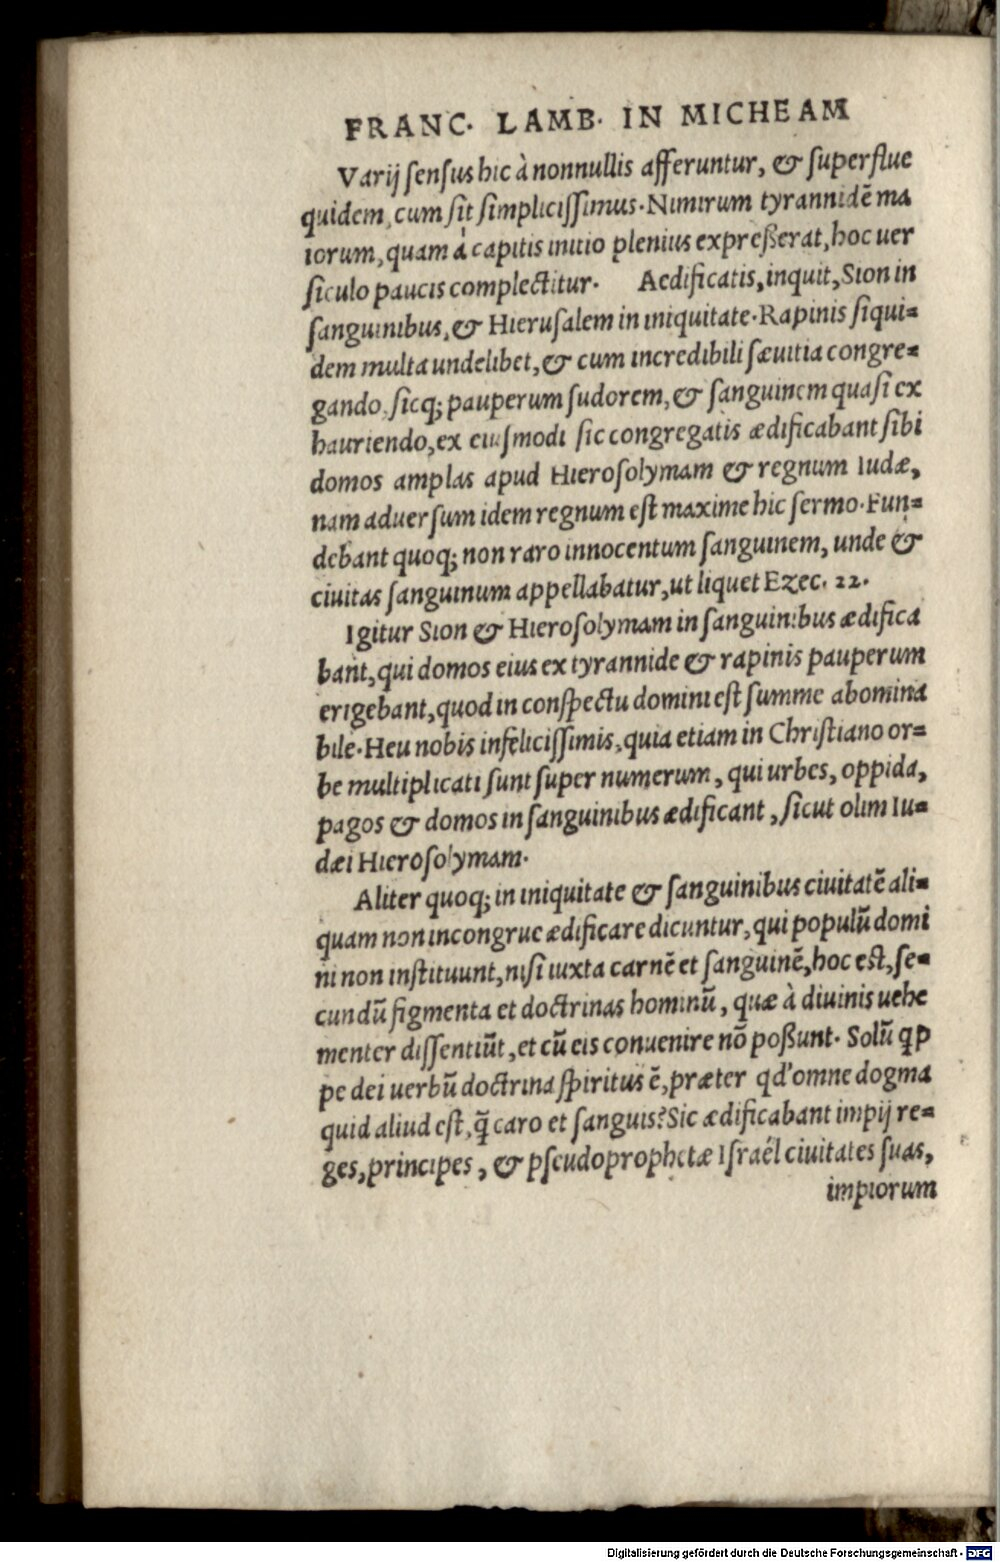 FRANC. LAMB. IN MICHEAM
Varij ſenſus hic à nonnullis afferuntur, & ſuperflue
quidem, cum ſit ſimpliciſſimus. Nimirum tyrannidẽ ma
iorum, quam à capitis initio plenius expreßerat, hoc uer
ſiculo paucis complectitur. Aedificatis, inquit, Sion in
ſanguinibus, & Hieruſalem in iniquitate. Rapinis ſiqui-
dem multa undelibet, & cum incredibili ſæuitia congre-
gando, ſicq; pauperum ſudorem, & ſanguinem quaſi ex
hauriendo, ex eiuſmodi ſic congregatis ædificabant ſibi
domos amplas apud Hieroſolymam & regnum Iudæ,
nam aduerſum idem regnum eſt maxime hic ſermo. Fun-
debant quoq; non raro innocentum ſanguinem, unde &
ciuitas ſanguinum appellabatur, ut liquet Ezec. 22.
Igitur Sion & Hieroſolymam in ſanguinibus ædifica
bant, qui domos eius ex tyrannide & rapinis pauperum
erigebant, quod in conſpectu domini eſt ſumme abomina
bile. Heu nobis infeliciſſimis, quia etiam in Chriſtiano or-
be multiplicati ſunt ſuper numerum, qui urbes, oppida,
pagos & domos in ſanguinibus ædificant, ſicut olim Iu-
dæi Hieroſolymam.
Aliter quoq; in iniquitate & ſanguinibus ciuitatẽ ali-
quam non incongrue ædificare dicuntur, qui populũ domi
ni non inſtituunt, niſi iuxta carnẽ et ſanguinẽ, hoc eſt, ſe-
cundũ figmenta et doctrinas hominũ, quæ à diuinis uehe
menter diſſentiũt, et cũ eis conuenire nõ poßunt. Solũ qp
pe dei uerbũ doctrina ſpiritus ẽ, præter qd' omne dogma
quid aliud eſt, q̃ caro et ſanguis? Sic ædificabant impij re-
ges, principes, & pſeudoprophetæ Iſraél ciuitates ſuas,
impiorum
Digitalisierung gefördert durch die Deutsche Forschungsgemeinschaft - DFG